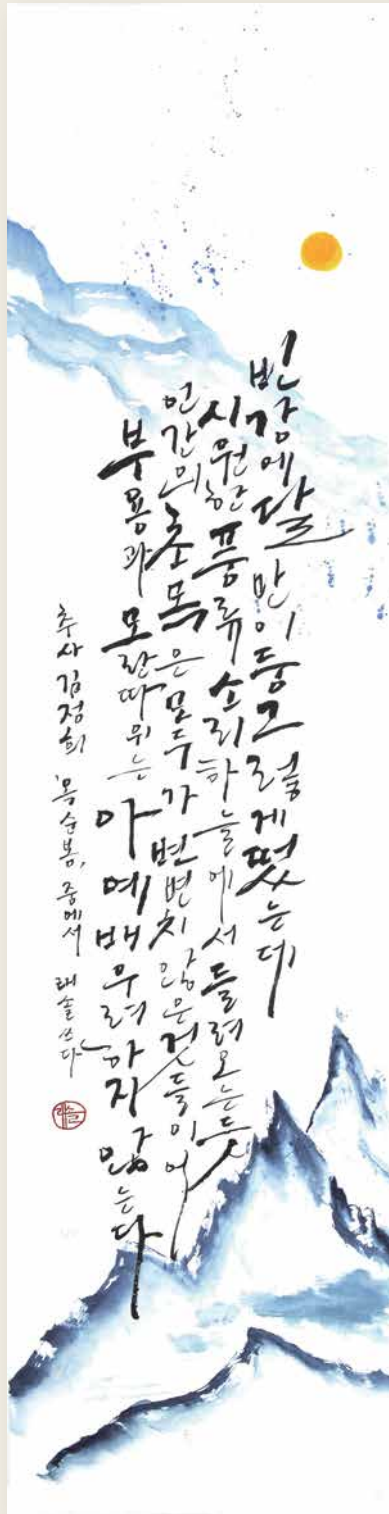 빈강에 달 반이 둥그렇게 떴는데
시원한 풍류소리 하늘에서 들려오는듯
인간의 초목은 모두가 변변치 않은것들이어
부용과 모란따위는 아예 배우려하지 않는다
추사 김정희 '목순봉, 중에서 래솔 쓰다
래솔